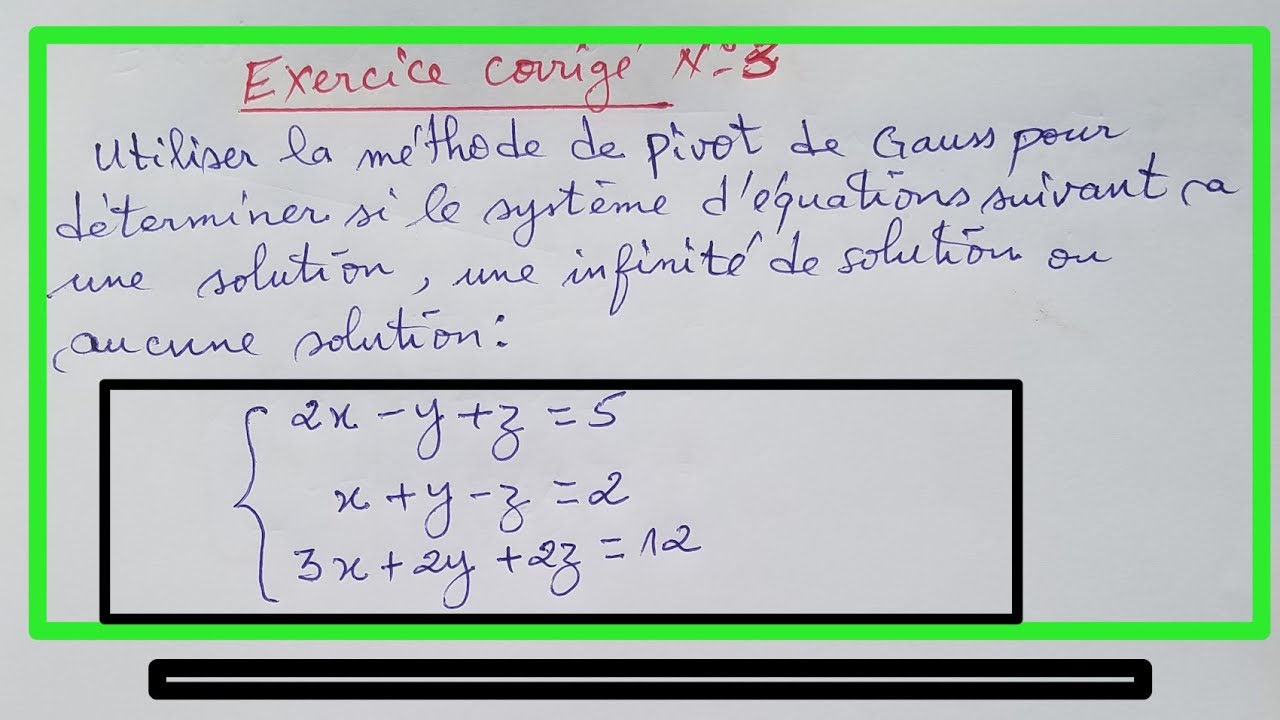 Exercice corrigé N°3
Utiliser la méthode de pivot de Gauss pour
déterminer si le système d'équations suivant a
une solution, une infinité de solution ou
aucune solution:
2x - y + z = 5
x + y - z = 2
3x + 2y + 2z = 12